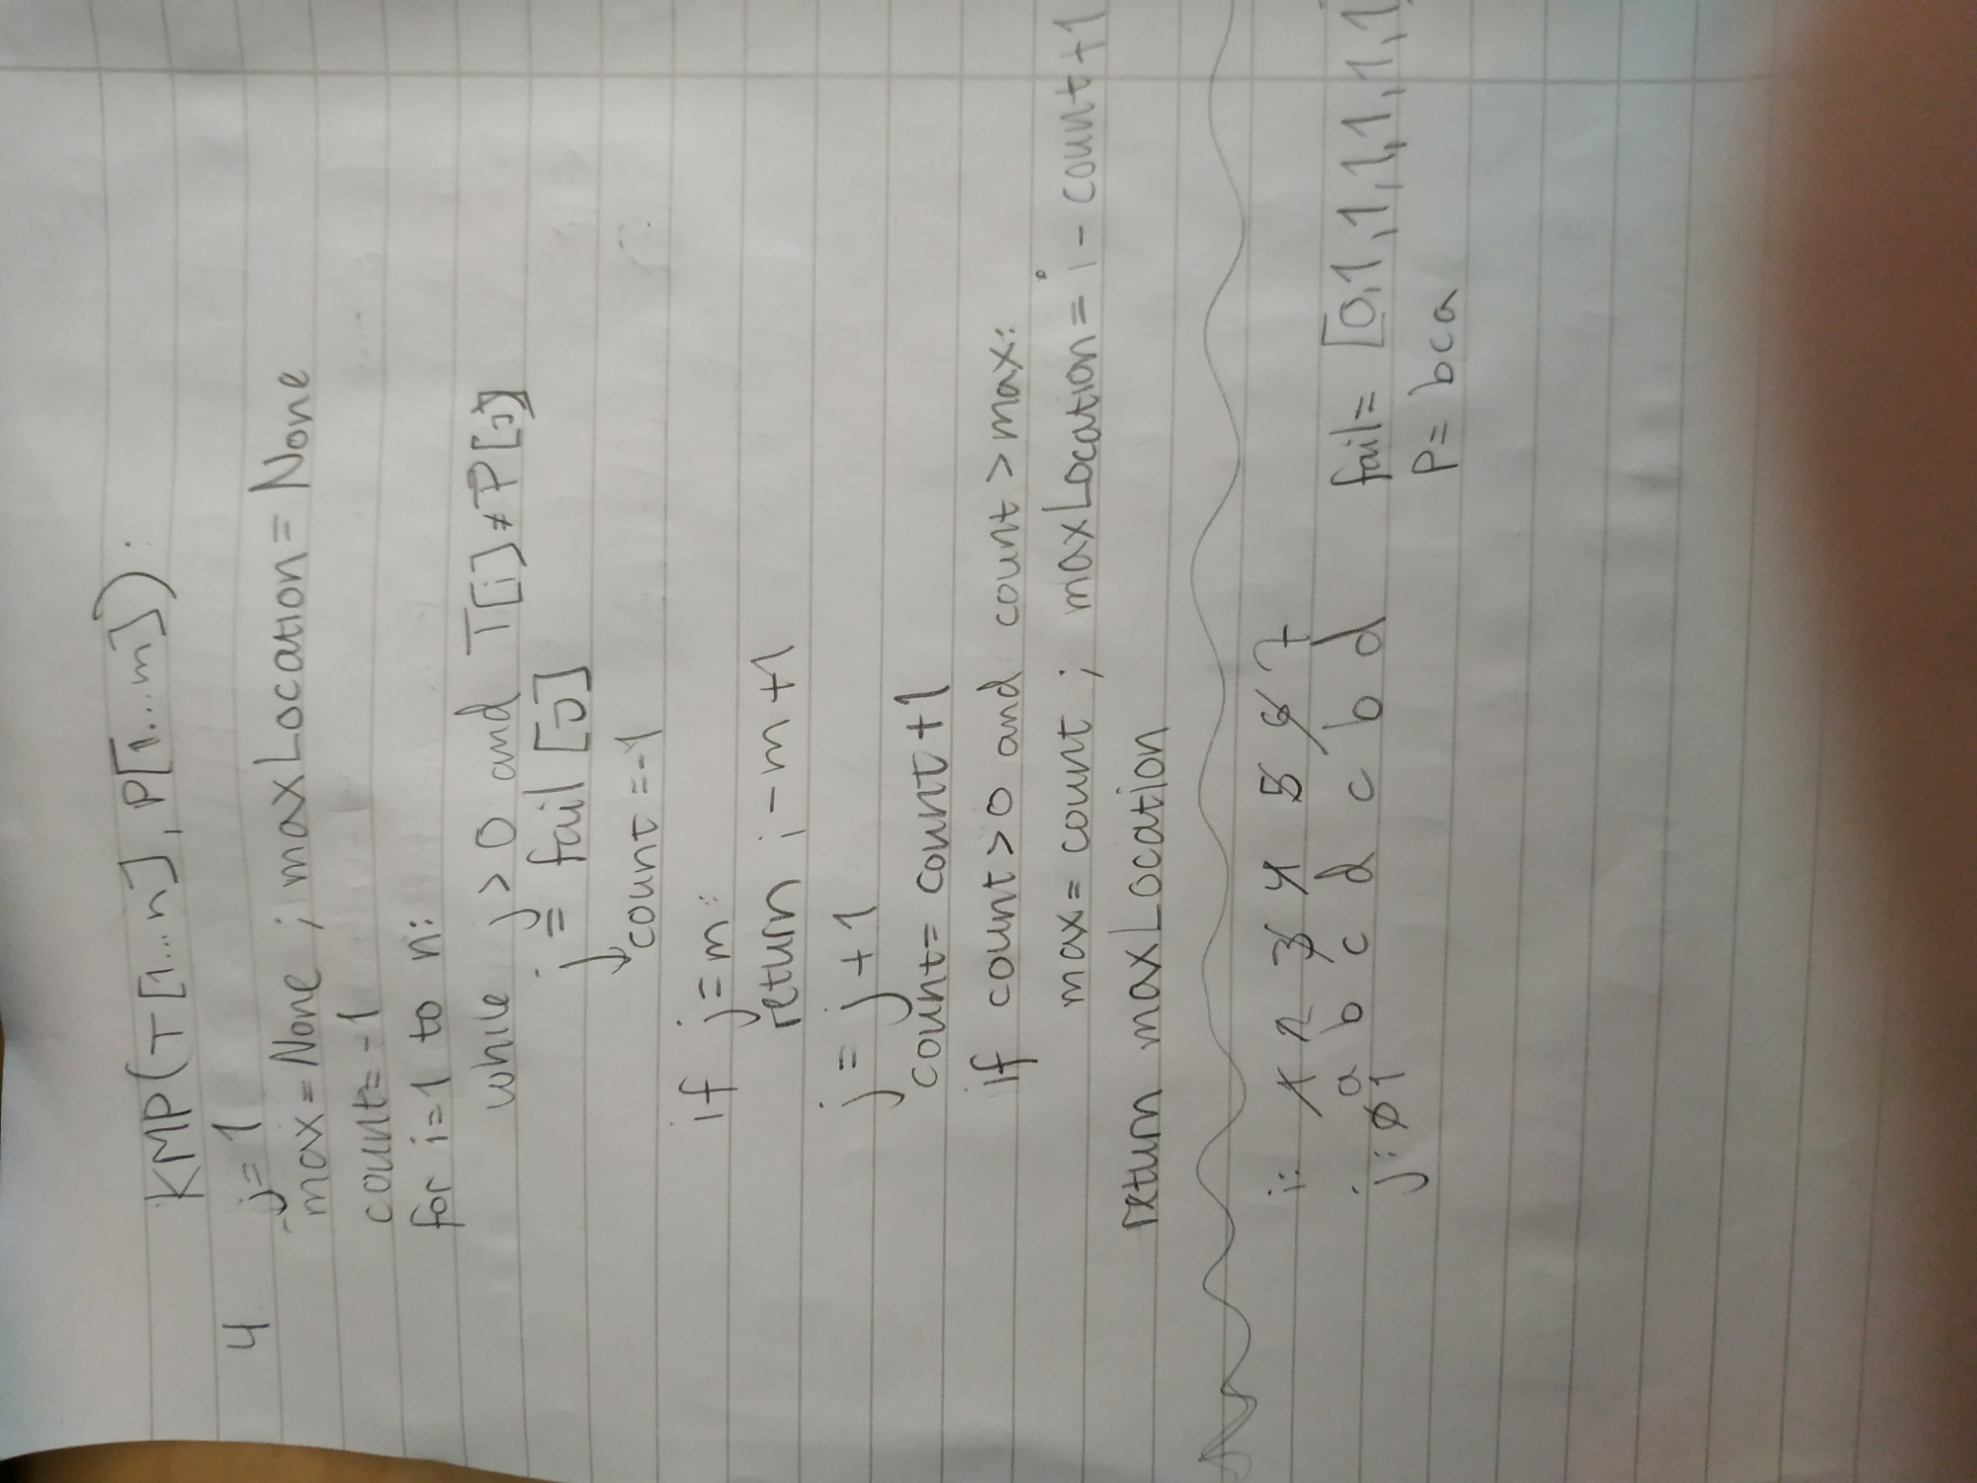 KMP(T[1...n], P[1...m]):
4 j=1
max=None ; maxLocation=None
count=-1
for i=1 to n:
while j>0 and T[i]≠P[j]
j = fail[j]
count=-1
if j=m:
return i-m+1
j=j+1
count=count+1
if count>0 and count>max:
max=count ; maxLocation=i-count+1
return maxLocation
i: 1 2 3 4 5 6 7
a b c d c b d
j: 0 1
fail= [0,1,1,1,1,1,1
P= bca